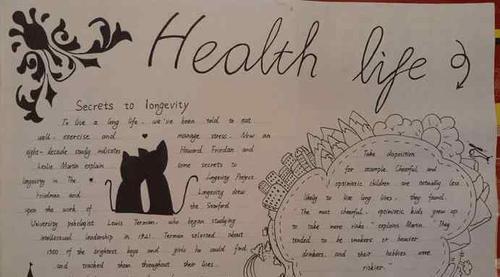 Health life
Secrets to longevity
To live a long life, we've been told to eat
well, exercise and manage stress. Now an
eight-decade study indicates Howard Friedan and
Leslie Martin explain some secrets to
longevity in The Longevity Project
Friedman and Longevity drew
upon the work of the Stanford
University Lewis Terman, who began studying
intellectual leadership in 1921. Terman selected about
1500 of the brightest boys and girls he could find
and tracked them throughout their lives.
Take disposition
for example. Cheerful and
optimistic children are actually less
likely to live long lives, they found.
"The most cheerful, optimistic kids grew up
to take more risks," explains Martin. They
tended to be smokers or heavier
drinkers, and their hobbies were
riskier.